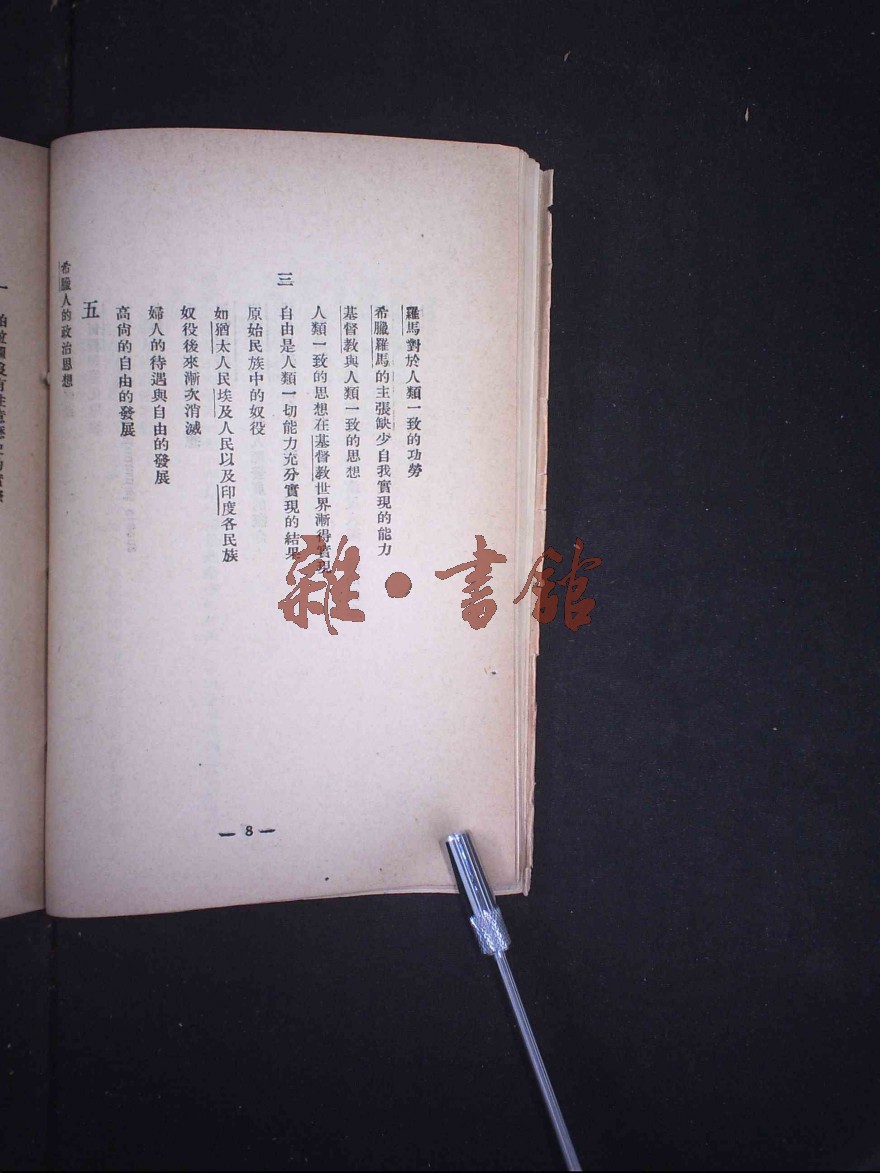 羅馬對於人類一致的功勞
希臘羅馬的主張缺少自我實現的能力
基督教與人類一致的思想
人類一致的思想在基督教世界漸得實現
三
自由是人類一切能力充分實現的結果
原始民族中的奴役
如猶太人民埃及人民以及印度各民族
奴役後來漸次消滅
婦人的待遇與自由的發展
高尚的自由的發展
五
希臘人的政治思想
— 8 —
一
雜·書館